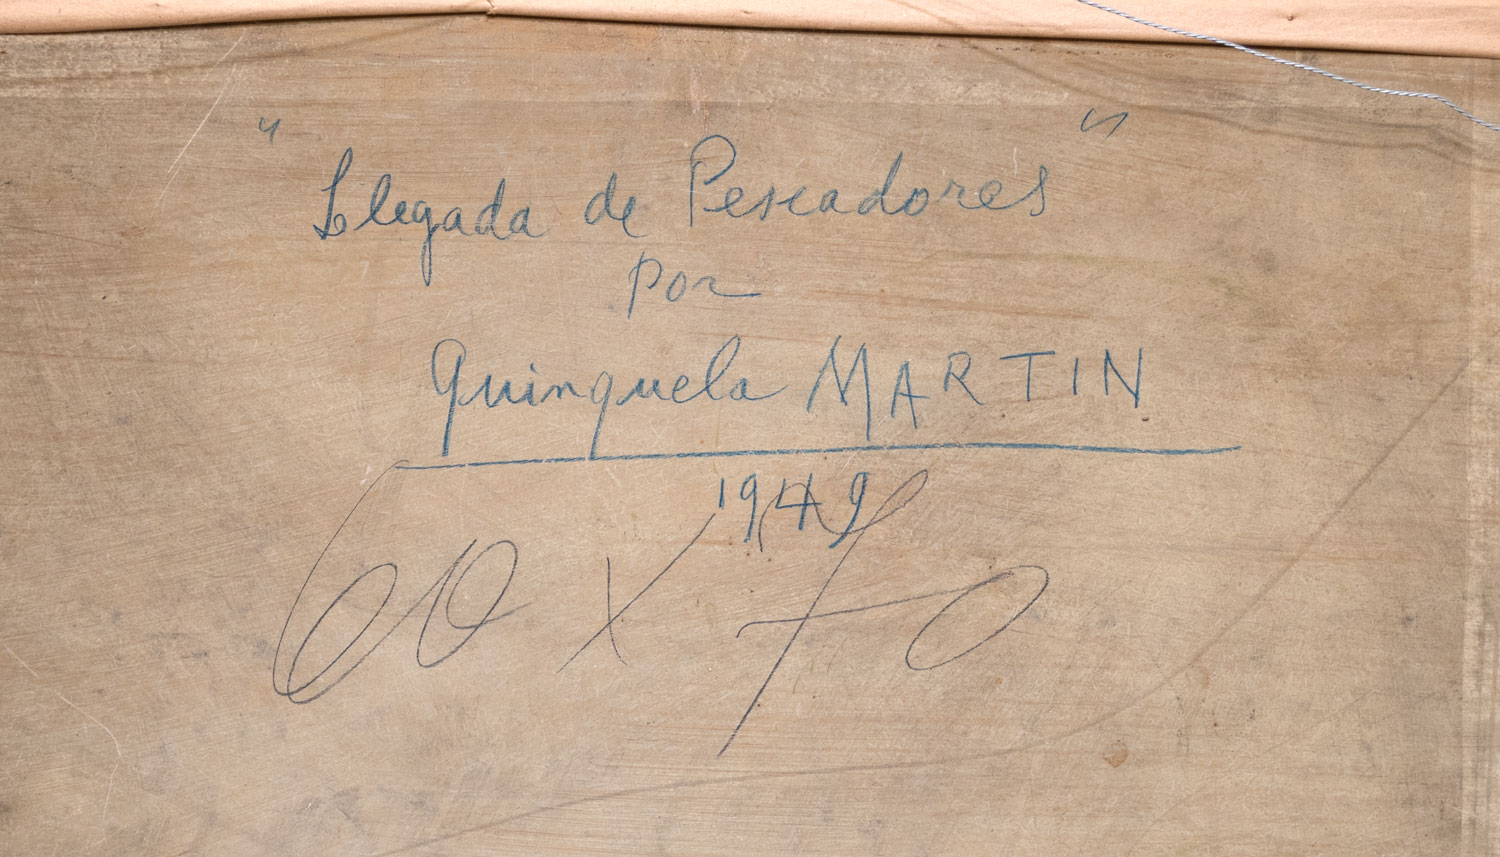 "Llegada de Pescadores"
por
Quinquela MARTIN
1949
60 x 70